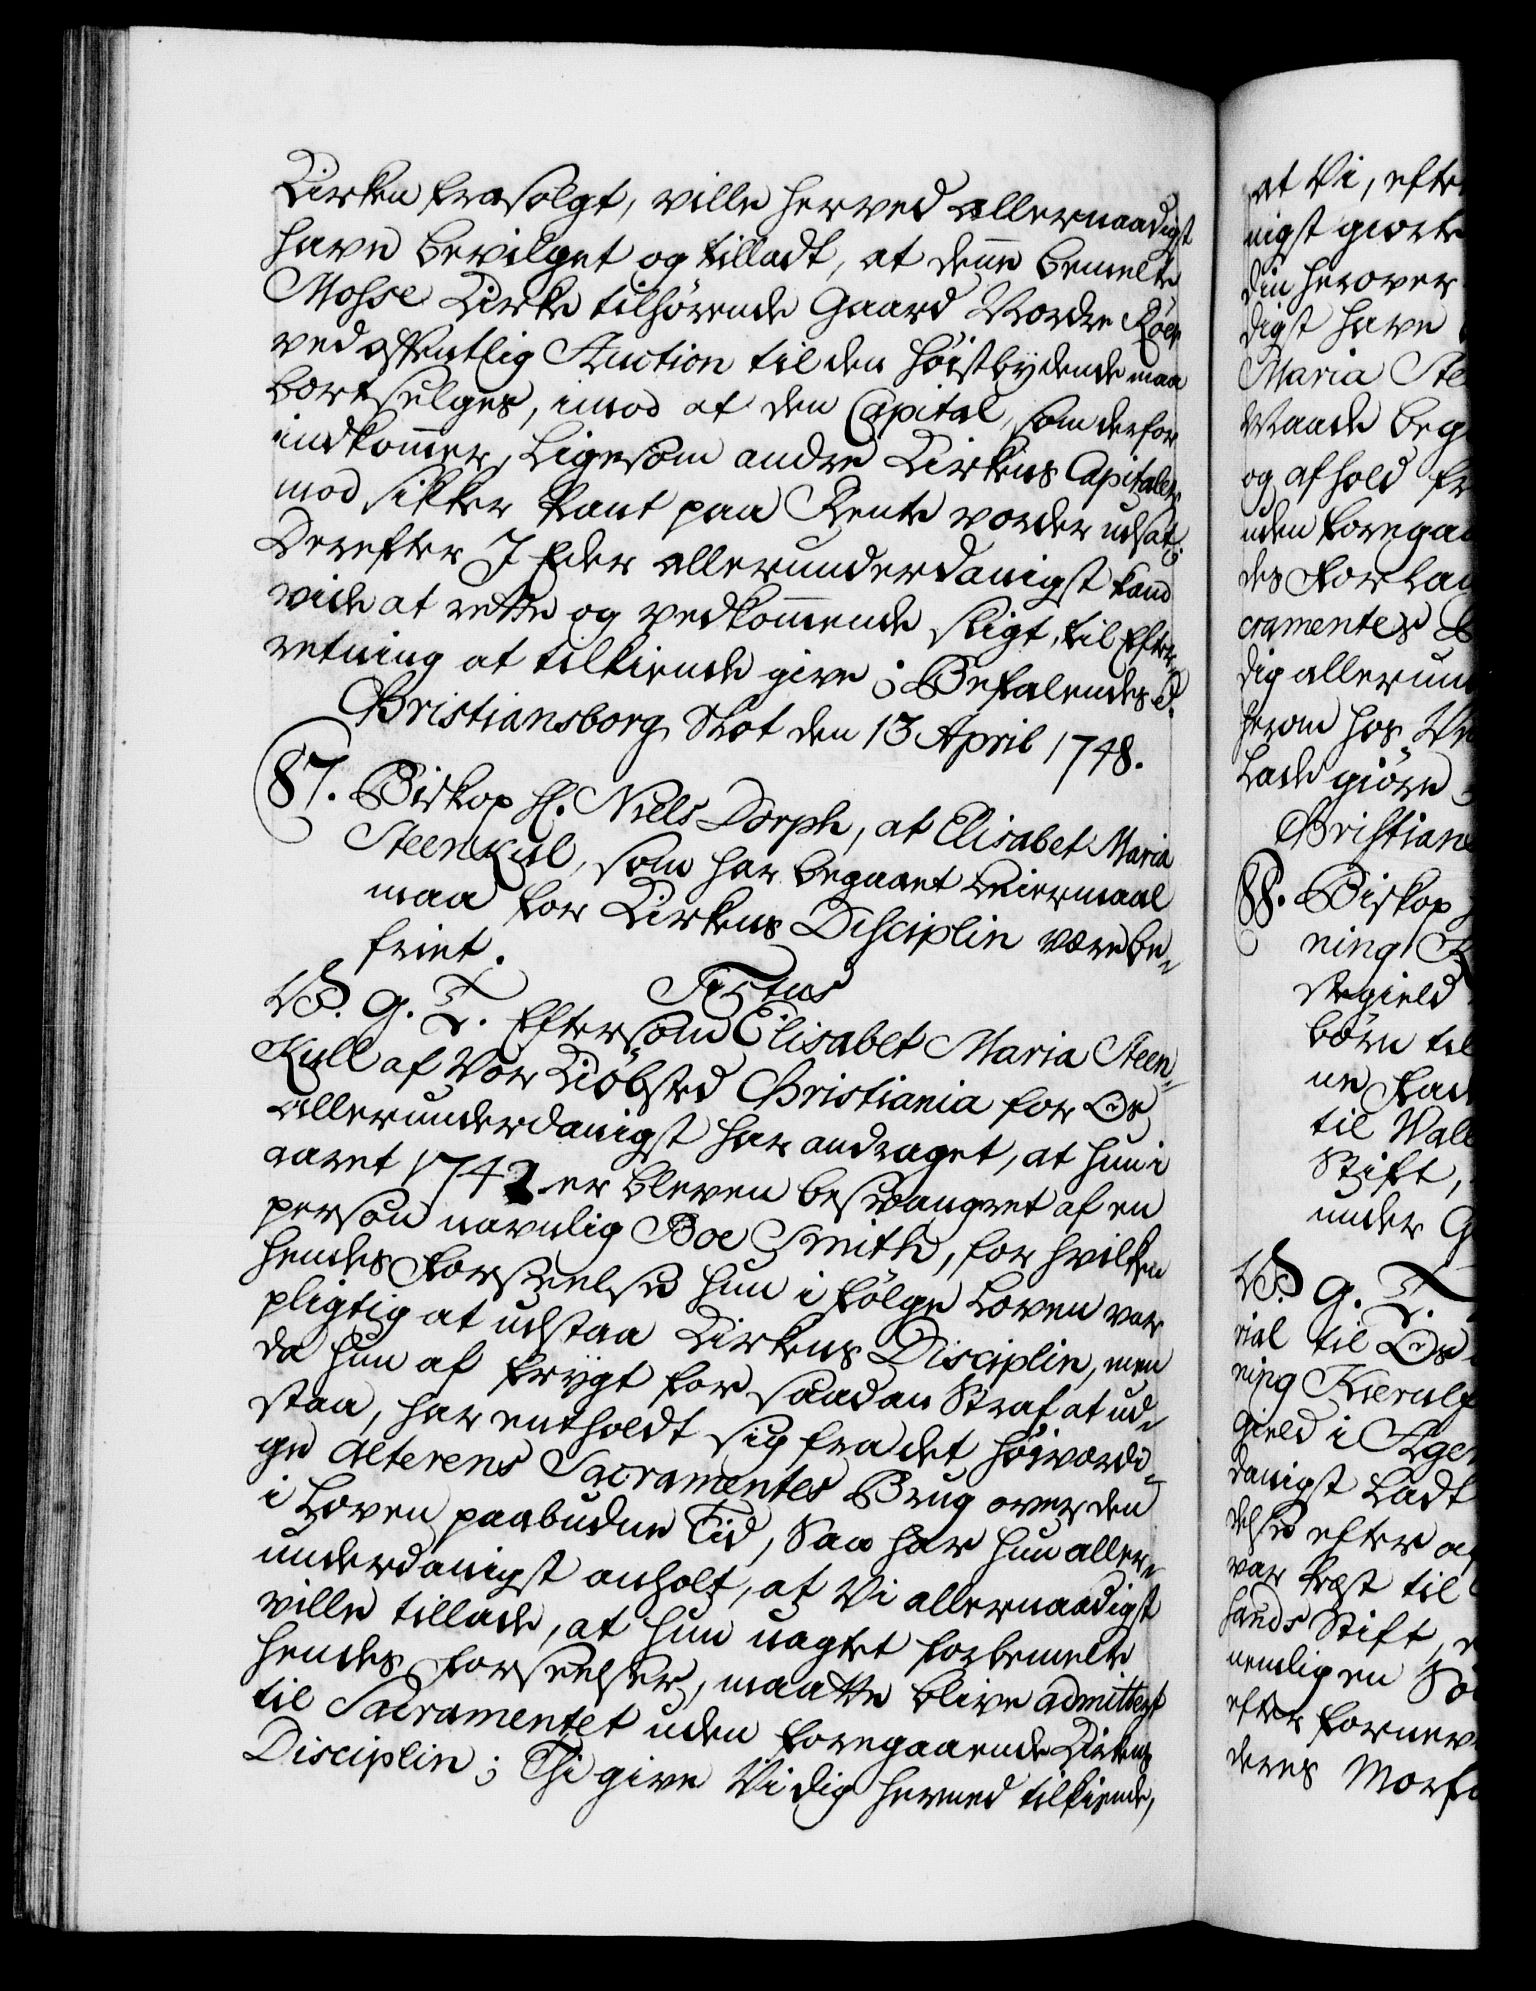 Kirken frasolgt, ville herved allernaadigst
have bevilget og tilladt, at denne bemelte
Mosse Kirke tilhørende Gaard Nordre
ved offentlig Auction til den høistbydende maa
bortselges, imod at den Capital, som derfor
indkommer, ligesom andre Kirkens Capitaler
mod sikker Pant paa Rente vorder udsat;
Derefter I Eder allerunderdanigst kand
vide at rette og vedkommende sligt, til Efter-
retning at tilkiende give; Befalendes p.
Christiansborg Slot den 13 April 1748.
87. Biskop H. Niels Dorph, at Elisabet Maria
Steenkul, som har begaaet Leiermaal
maa for Kirkens Disciplin være be-
friet.
Titus
V. G. T. Eftersom Elisabet Maria Steen-
Kull af Vor Kiøbsted Christiania for Os
allerunderdanigst har andraget, at hun i
aaret 1742 er bleven besvangret af en
person navnlig Boe Smith, for hvilken
hendes Forseelse hun i følge Loven var
pligtig at udstaa Kirkens Disciplin, men
da hun af frygt for saadan Straf at ud-
staa, har entholdt sig fra det høiværdi-
ge Alterens Sacramentes Brug over den
i Loven paabudne Tid, Saa har hun aller-
underdanigst anholt, at Vi allernaadigst
ville tillade, at hun uagtet forbemelte
hendes Forseelser, maatte blive admittert
til Sacramentet uden foregaaende Kirkens
Disciplin; Thi give Vi dig hermed tilkiende,
at Vi, efter
nigst giorte
din herover
digst have
Maria Ste
Maade beg
og afhold fr
uden foregaa
des Forla
cramentes B
dig allerun
herom hos Ve
Lade giøre
Christians
88. Biskop
ning K
stegield
børn til
ne Fad
til Vall
Stift,
under G
V. G. T.
rial til Os
ning Kierulf
gield i Agger
danigst ladt
delse efter a
var Præst til
hands Stift,
nemlig en Sø
efter fornev
deres Morfa